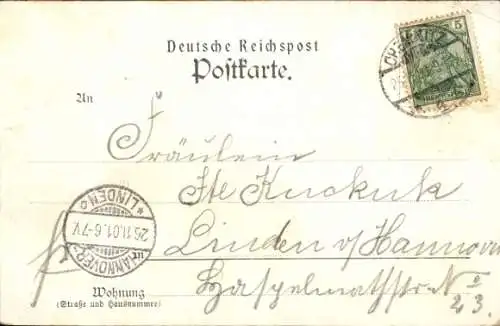 5
CHEMNITZ
Deutsche Reichspost
Postkarte.
An
Fräulein
Ite Kuckuk
Linden v/Hannover
in
Haspelmathstr. N° 23 I
* LINDEN *
26.11.01.6-7V.
HANNOVER
Wohnung
(Straße und Hausnummer)